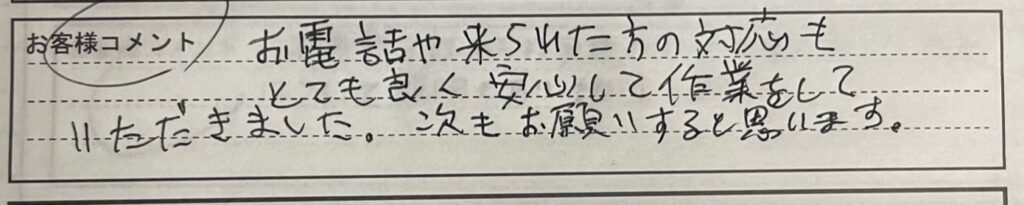 お客様コメント お電話や来られた方の対応も
とても良く安心して作業をして
いただきました。次もお願いすると思います。